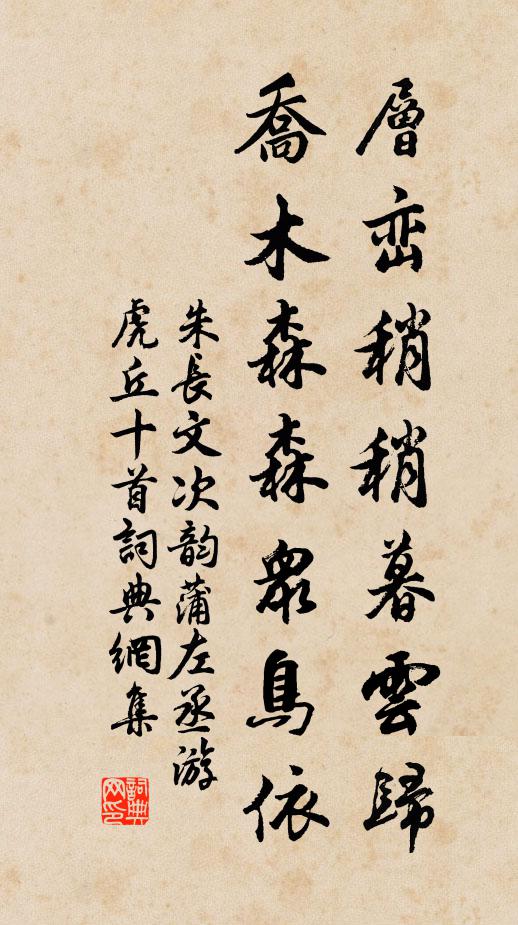 層峦稍稍暮雲歸
喬木森森眾鳥依
朱長文次韵蒲左丞游
虎丘十首詞典網集
詞典
网印